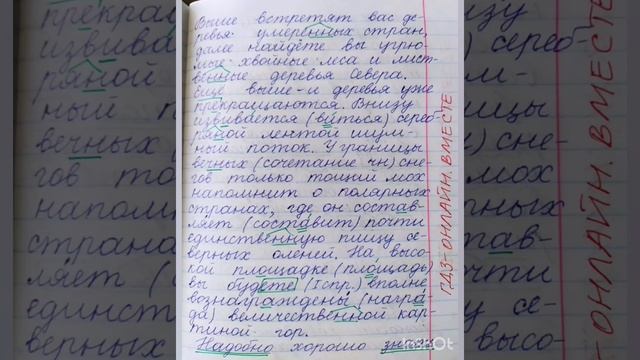 Выше встретят вас де-
ревья умеренных стран,
далее найдёте вы угрю-
мые хвойные леса и лист-
венные деревья Севера.
Ещё выше - и деревья уже
прекращаются. Внизу
извивается (виться) сереб-
ряной лентой шум-
ный поток. У границы
вечных (сочетание чн) сне-
гов только тощий мох
напомнит о полярных
странах, где он состав-
ляет (составит) почти
единственную пищу се-
верных оленей. На высо-
кой площадке (площадь)
вы будете (I спр.) вполне
вознаграждены (награ-
да) величественной кар-
тиной гор.
Надобно хорошо
ГДЗ-ОНЛАЙН. ВМЕСТЕ